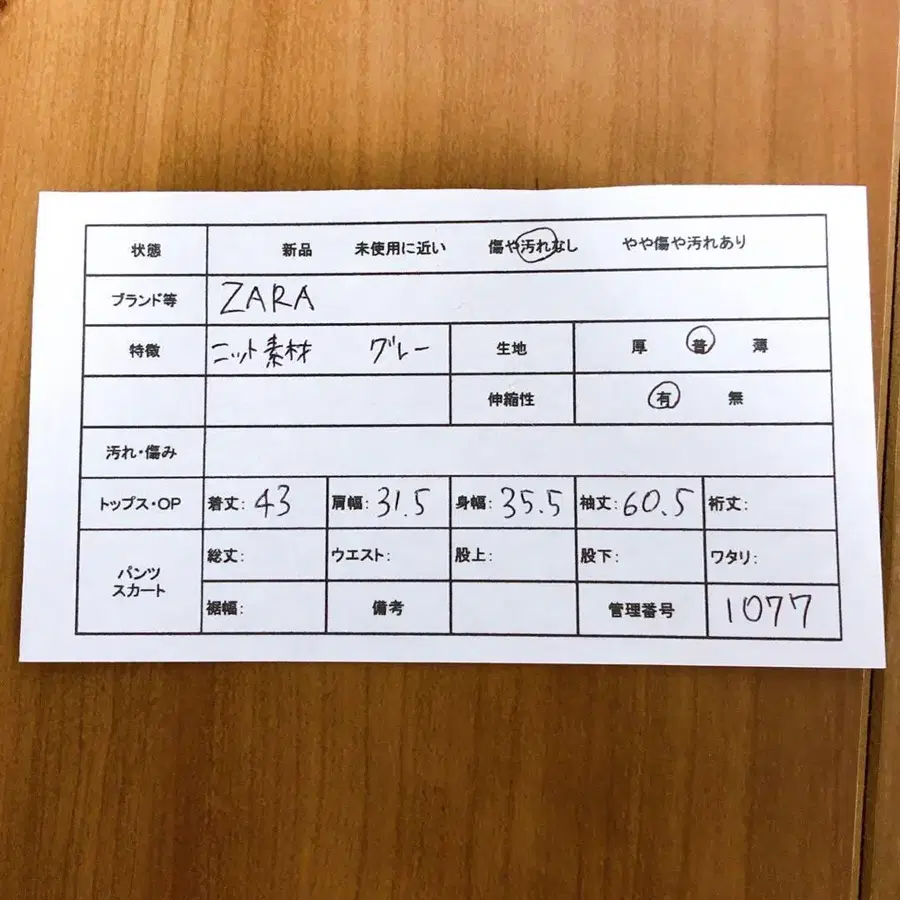 状態 新品 未使用に近い 傷や汚れなし やや傷や汚れあり
ブランド等 ZARA
特徴 ニット素材 グレー 生地 厚 普 薄
伸縮性 有 無
汚れ・傷み
トップス・OP 着丈: 43 肩幅: 31.5 身幅: 35.5 袖丈: 60.5 裄丈:
パンツ スカート 総丈: ウエスト: 股上: 股下: ワタリ:
裾幅: 備考 管理番号 1077